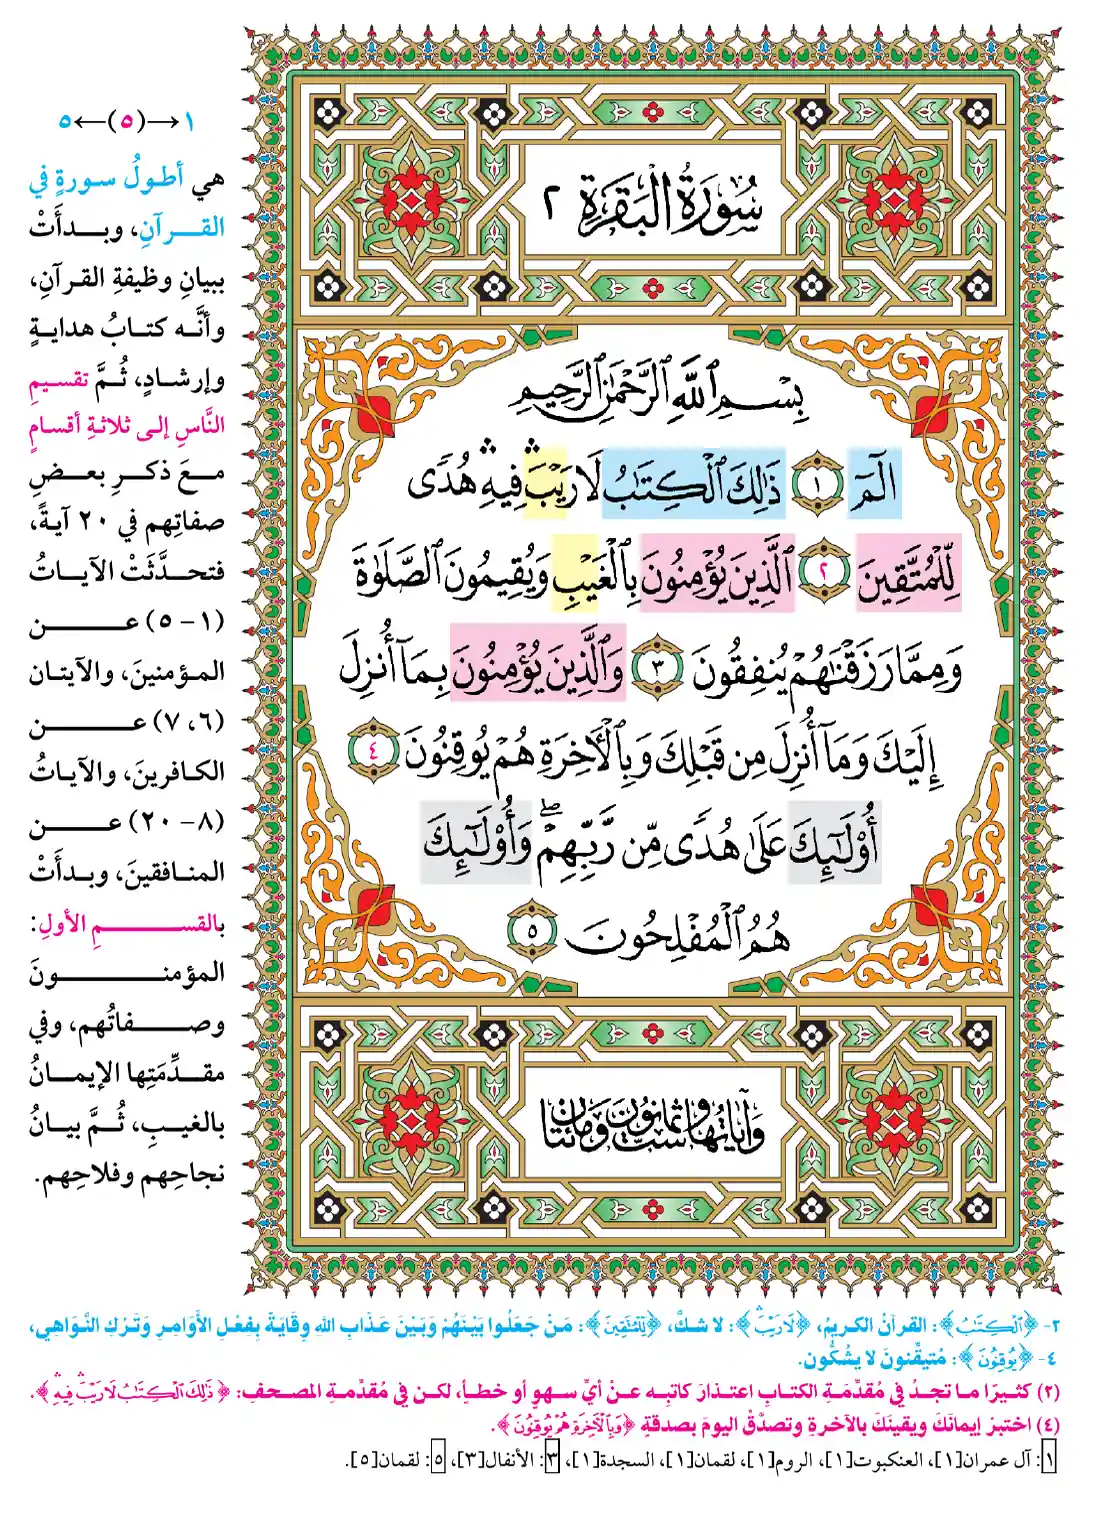 سُورَةُ الْبَقَرَةِ ٢
بِسْمِ ٱللَّهِ ٱلرَّحْمَٰنِ ٱلرَّحِيمِ
الٓمٓ ١ ذَٰلِكَ ٱلْكِتَٰبُ لَا رَيْبَ ۛ فِيهِ ۛ هُدًى
لِّلْمُتَّقِينَ ٢ ٱلَّذِينَ يُؤْمِنُونَ بِٱلْغَيْبِ وَيُقِيمُونَ ٱلصَّلَوٰةَ
وَمِمَّا رَزَقْنَٰهُمْ يُنفِقُونَ ٣ وَٱلَّذِينَ يُؤْمِنُونَ بِمَآ أُنزِلَ
إِلَيْكَ وَمَآ أُنزِلَ مِن قَبْلِكَ وَبِٱلْءَاخِرَةِ هُمْ يُوقِنُونَ ٤
أُو۟لَٰٓئِكَ عَلَىٰ هُدًى مِّن رَّبِّهِمْ ۖ وَأُو۟لَٰٓئِكَ
هُمُ ٱلْمُفْلِحُونَ ٥
وَآيَاتُهَا سِتٌّ وَثَمَانُونَ وَمِائَتَانِ
١→(٥)←٥
هي أطولُ سورةٍ في
القرآنِ، وبدأَتْ
ببيانِ وظيفةِ القرآنِ،
وأنَّه كتابُ هدايةٍ
وإرشادٍ، ثُمَّ تقسيمِ
النَّاسِ إلى ثلاثةِ أقسامٍ
معَ ذكرِ بعضِ
صفاتِهم في ٢٠ آيةً،
فتحدَّثَتْ الآياتُ
(١- ٥) عن
المؤمنينَ، والآيتان
(٦، ٧) عن
الكافرينَ، والآياتُ
(٨- ٢٠) عن
المنافقينَ، وبدأَتْ
بالقسمِ الأولِ:
المؤمنونَ
وصفاتُهم، وفي
مقدِّمَتِها الإيمانُ
بالغيبِ، ثُمَّ بيانُ
نجاحِهم وفلاحِهم.
٢- ﴿ٱلْكِتَٰبُ﴾: القرآنُ الكريمُ، ﴿لَا رَيْبَ ۛ﴾: لا شكَّ، ﴿لِّلْمُتَّقِينَ﴾: مَنْ جَعَلُوا بَيْنَهُمْ وَبَيْنَ عَذَابِ اللهِ وِقَايَةً بِفِعْلِ الأَوَامِرِ وَتَرْكِ النَّوَاهِي،
٤- ﴿يُوقِنُونَ﴾: مُتيقِّنونَ لا يشكُّون.
(٢) كثيرًا ما تجدُ في مُقدِّمَةِ الكتابِ اعتذارَ كاتبِه عنْ أيِّ سهوٍ أو خطأٍ، لكن في مُقدِّمةِ المصحفِ: ﴿ذَٰلِكَ ٱلْكِتَٰبُ لَا رَيْبَ ۛ فِيهِ ۛ﴾.
(٤) اختبرْ إيمانَكَ ويقينَكَ بالآخرةِ وتصدَّقْ اليومَ بصدقةٍ ﴿وَبِٱلْءَاخِرَةِ هُمْ يُوقِنُونَ﴾.
١: آل عمران[١]، العنكبوت[١]، الروم[١]، لقمان[١]، السجدة[١]، ٣: الأنفال[٣]، ٥: لقمان[٥].